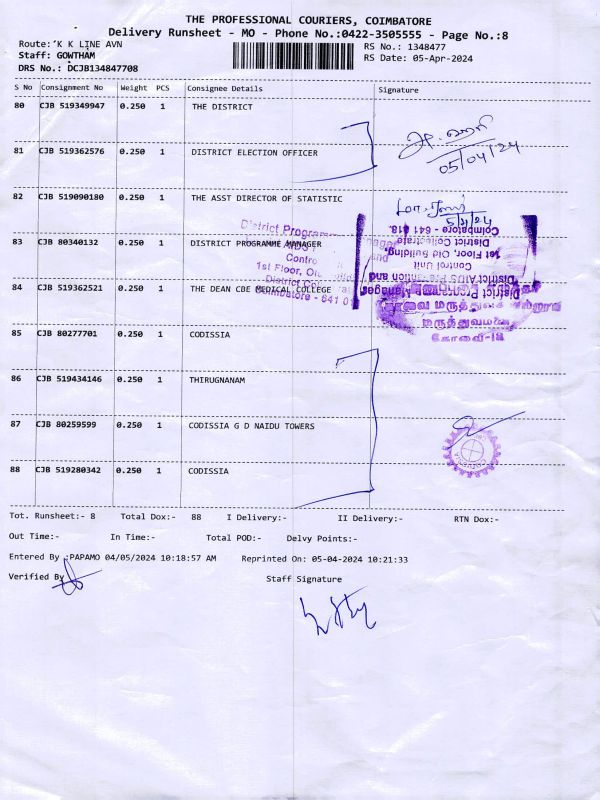 THE PROFESSIONAL COURIERS, COIMBATORE
Delivery Runsheet - MO - Phone No.:0422-3505555 - Page No.:8
Route:K K LINE AVN
RS No.: 1348477
Staff: GOWTHAM
RS Date: 05-Apr-2024
DRS No.: DCJB134847708
S No Consignment No Weight PCS Consignee Details Signature
80 CJB 519349947 0.250 1 THE DISTRICT
81 CJB 519362576 0.250 1 DISTRICT ELECTION OFFICER
05/04/24
82 CJB 519090180 0.250 1 THE ASST DIRECTOR OF STATISTIC
5/4/24
83 CJB 80340132 0.250 1 DISTRICT PROGRAMME MANAGER
84 CJB 519362521 0.250 1 THE DEAN CBE MEDICAL COLLEGE
District Programme Manager
District AIDS Prevention and
Control Unit
1st Floor, Old Building,
District Collectorate
Coimbatore - 641 018.
85 CJB 80277701 0.250 1 CODISSIA
86 CJB 519434146 0.250 1 THIRUGNANAM
87 CJB 80259599 0.250 1 CODISSIA G D NAIDU TOWERS
88 CJB 519280342 0.250 1 CODISSIA
Tot. Runsheet:- 8 Total Dox:- 88 I Delivery:- II Delivery:- RTN Dox:-
Out Time:- In Time:- Total POD:- Delvy Points:-
Entered By :PAPAMO 04/05/2024 10:18:57 AM Reprinted On: 05-04-2024 10:21:33
Verified By
Staff Signature